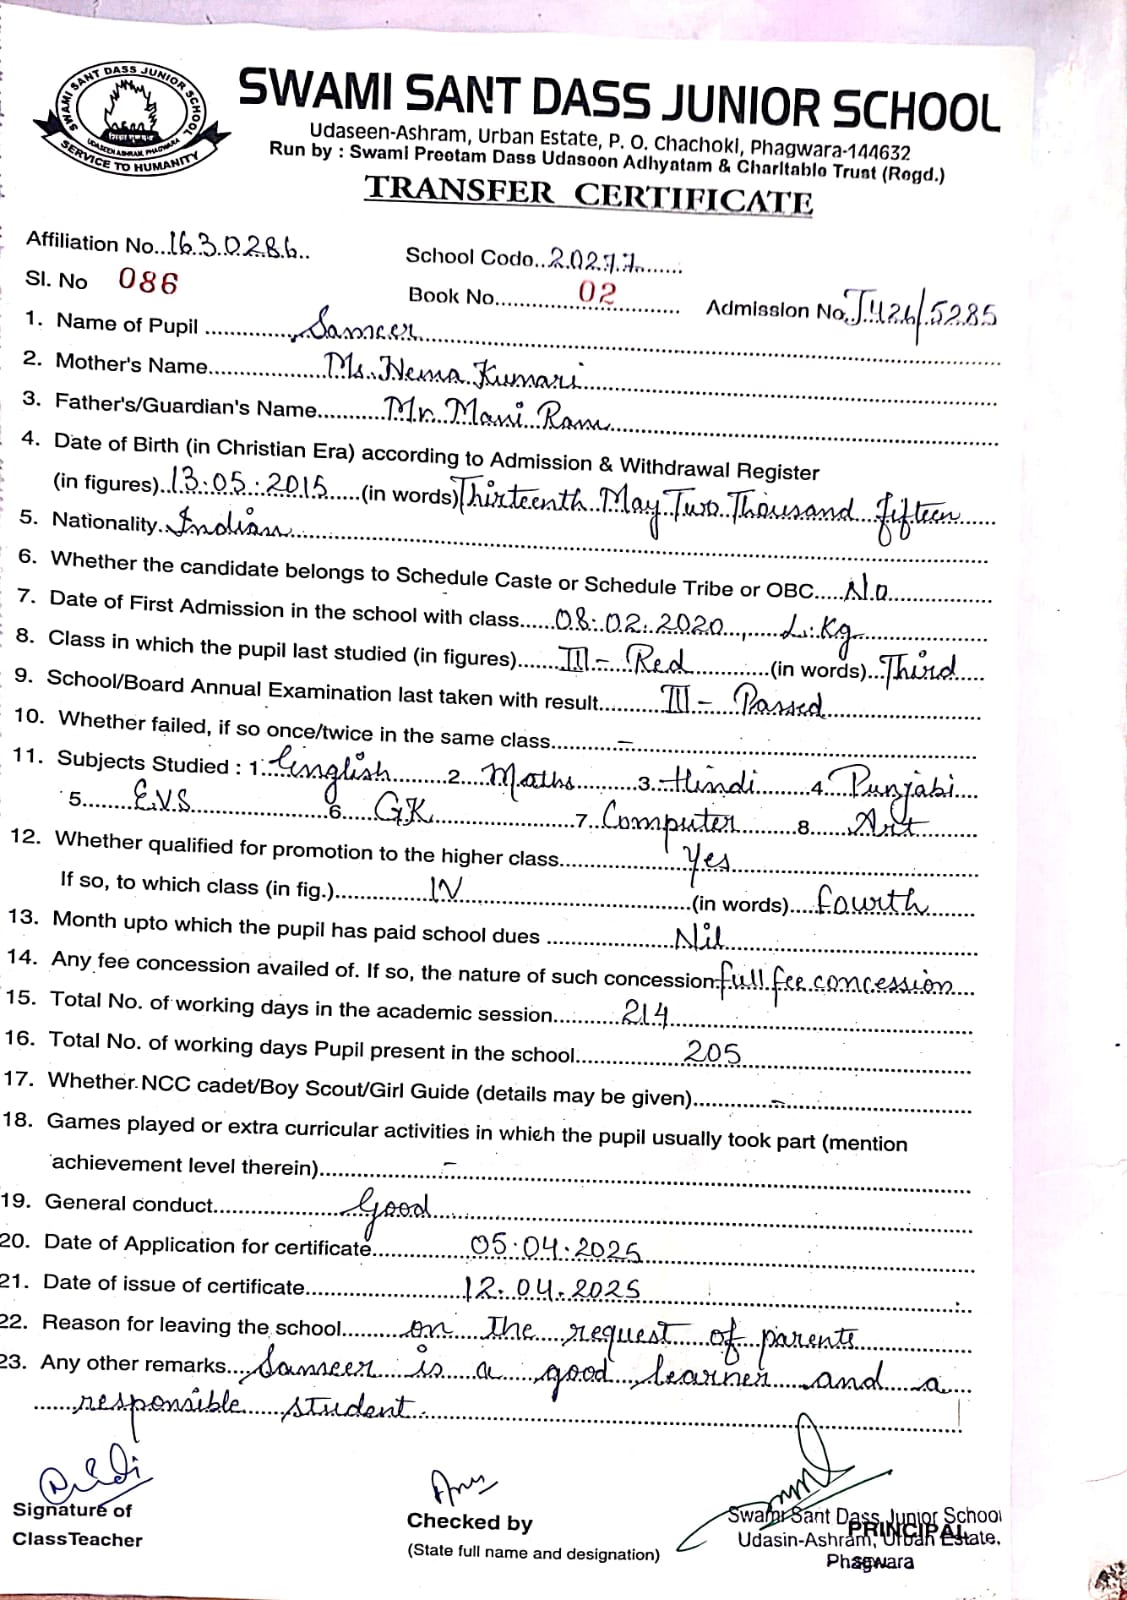 SWAMI SANT DASS JUNIOR SCHOOL
UDASEEN ASHRAM, PHAGWARA
SERVICE TO HUMANITY
SWAMI SANT DASS JUNIOR SCHOOL
Udaseen-Ashram, Urban Estate, P. O. Chachoki, Phagwara-144632
Run by : Swami Preetam Dass Udaseen Adhyatam & Charitable Trust (Regd.)
TRANSFER CERTIFICATE
Affiliation No. 1630286
School Code 20277
Sl. No 086
Book No. 02
Admission No. J426/5285
1. Name of Pupil Sameer
2. Mother's Name Ms. Hema Kumari
3. Father's/Guardian's Name Mr. Mani Ram
4. Date of Birth (in Christian Era) according to Admission & Withdrawal Register
(in figures) 13.05.2015 (in words) Thirteenth May Two Thousand fifteen
5. Nationality Indian
6. Whether the candidate belongs to Schedule Caste or Schedule Tribe or OBC No
7. Date of First Admission in the school with class 08.02.2020, L.Kg
8. Class in which the pupil last studied (in figures) III - Red (in words) Third
9. School/Board Annual Examination last taken with result III - Passed
10. Whether failed, if so once/twice in the same class –
11. Subjects Studied : 1. English 2. Maths 3. Hindi 4. Punjabi
5. E.V.S 6. GK 7. Computer 8. Art
12. Whether qualified for promotion to the higher class Yes
If so, to which class (in fig.) IV (in words) fourth
13. Month upto which the pupil has paid school dues Nil
14. Any fee concession availed of. If so, the nature of such concession full fee concession
15. Total No. of working days in the academic session 214
16. Total No. of working days Pupil present in the school 205
17. Whether NCC cadet/Boy Scout/Girl Guide (details may be given) –
18. Games played or extra curricular activities in which the pupil usually took part (mention
achievement level therein) –
19. General conduct Good
20. Date of Application for certificate 05.04.2025
21. Date of issue of certificate 12.04.2025
22. Reason for leaving the school on the request of parents
23. Any other remarks Sameer is a good learner and a
responsible student.
Signature of
ClassTeacher
Checked by
(State full name and designation)
Swami Sant Dass Junior School
PRINCIPAL
Udasin-Ashram, Urban Estate,
Phagwara